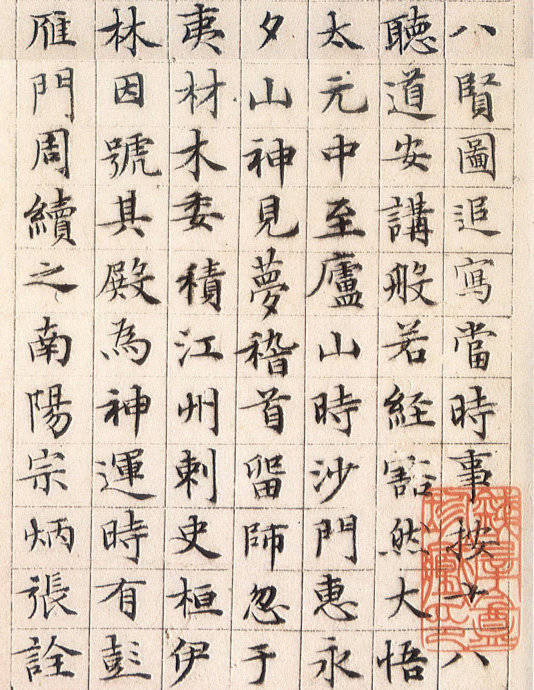 八賢圖追寫當時事按十八
聽道安講般若経豁然大悟
太元中至廬山時沙門惠永
夕山神見夢稽首留師忽于
夷材木委積江州刺史桓伊
林因號其殿為神運時有彭
雁門周續之南陽宗炳張詮